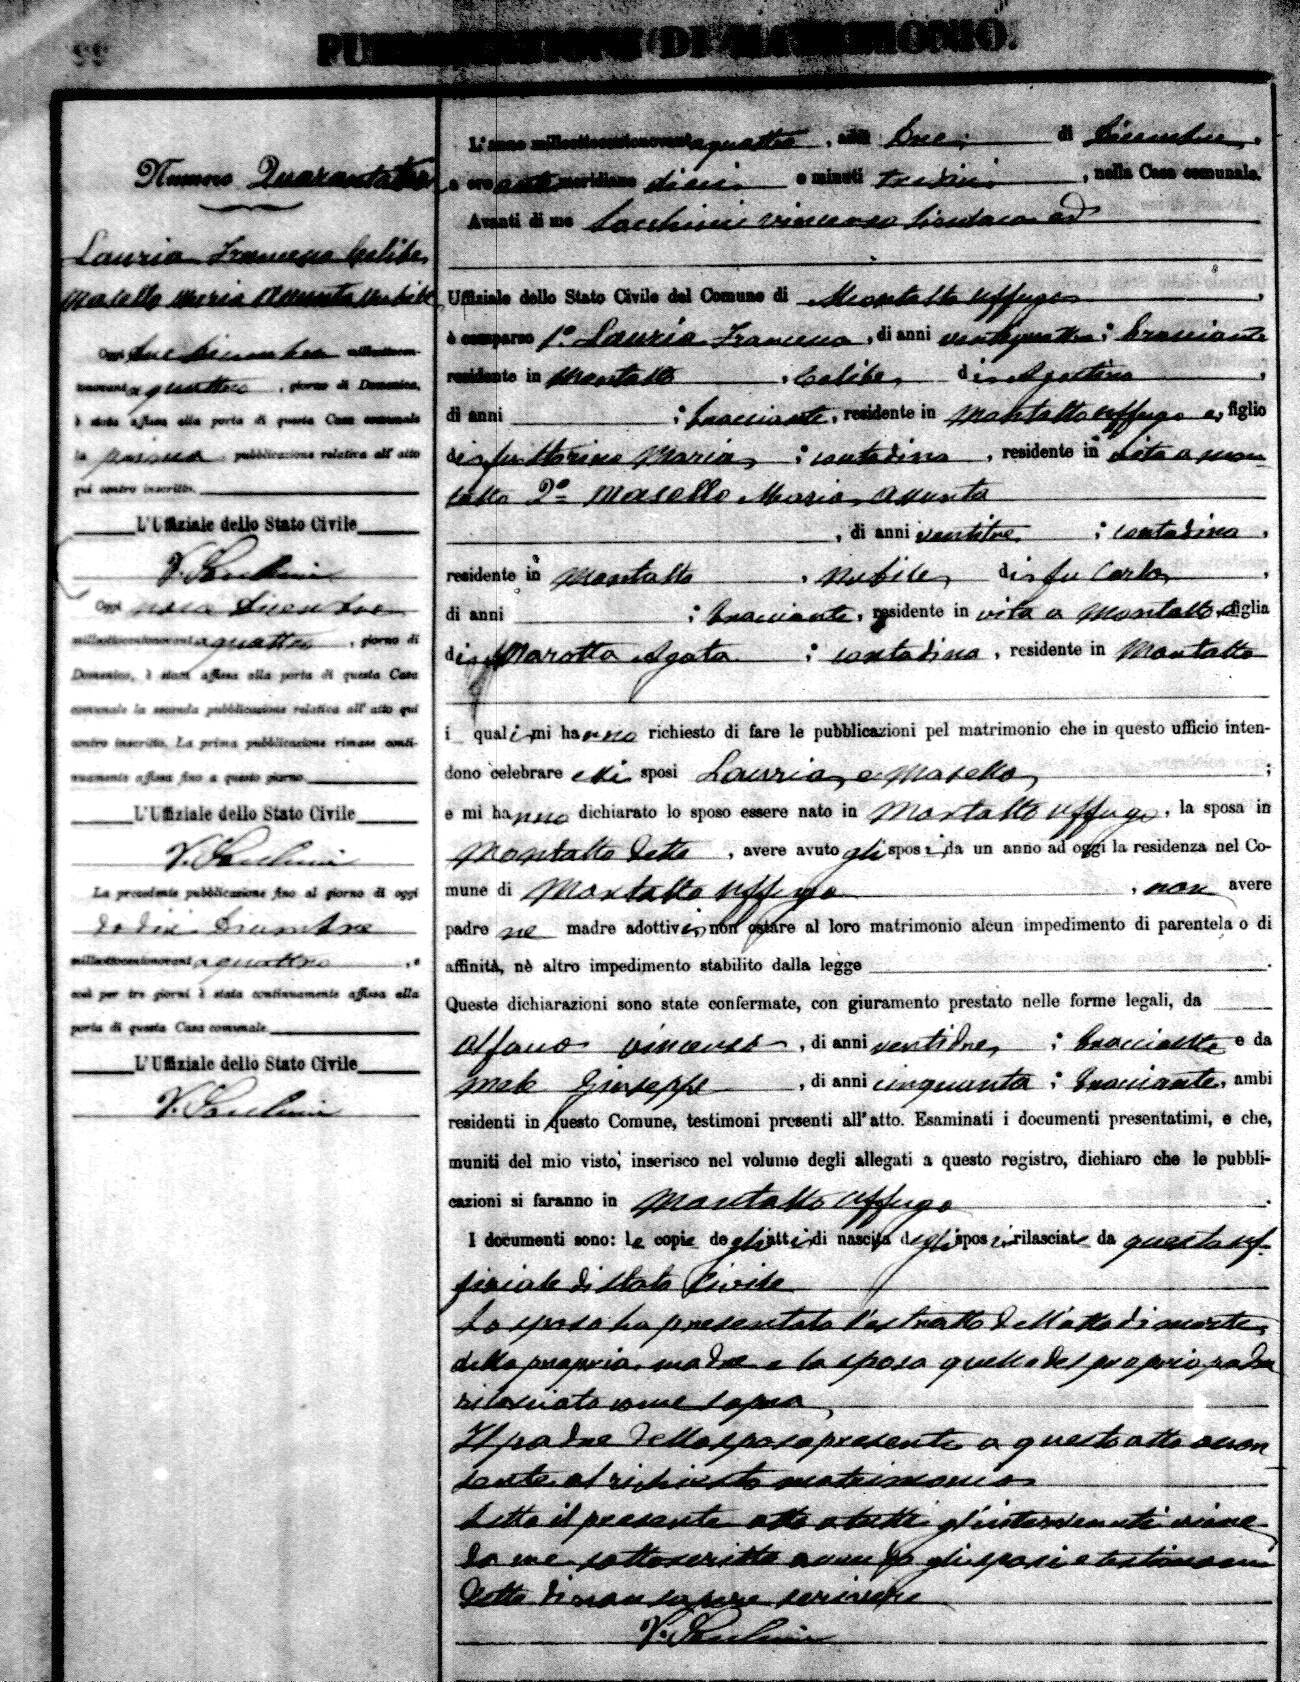 PUBBLICAZIONI DI MATRIMONIO.
Numero Quarantatre
Lauria Francesco Celibe
Masello Maria Assunta Nubile
Oggi due Dicembre milleottocen-
tonovantaquattro, giorno di Domenica,
è stata affissa alla porta di questa Casa comunale
la prima pubblicazione relativa all' atto
qui contro inscritto.
L'Uffiziale dello Stato Civile
Oggi nove Dicembre
milleottocentonovantaquattro, giorno di
Domenica, è stata affissa alla porta di questa Casa
comunale la seconda pubblicazione relativa all' atto qui
contro inscritto. La prima pubblicazione rimase conti-
nuamente affissa fino a questo giorno.
L'Uffiziale dello Stato Civile
La precedente pubblicazione fino al giorno di oggi
dodici Dicembre
milleottocentonovantaquattro, e
così per tre giorni è stata continuamente affissa alla
porta di questa Casa comunale.
L'Uffiziale dello Stato Civile
L'anno milleottocentonovantaquattro, addì Due di Dicembre,
a ore antimeridiane dieci e minuti tredici, nella Casa comunale.
Avanti di me Vincenzo Sindaco ed
Uffiziale dello Stato Civile del Comune di Montalto Uffugo,
è comparso 1° Lauria Francesco, di anni ventiquattro; bracciante
residente in Montalto, Celibe, di Agostino,
di anni ; bracciante, residente in Montalto Uffugo e, figlio
di fu Maria, ; contadina, residente in vita a Mon-
talto 2° Masello Maria Assunta
, di anni ventitre ; contadina,
residente in Montalto, Nubile, di fu Carlo,
di anni ; bracciante, residente in vita a Montalto, figlia
di Marotta Agata ; contadina, residente in Montalto
i quali mi hanno richiesto di fare le pubblicazioni pel matrimonio che in questo ufficio inten-
dono celebrare essi sposi Lauria, e Masello,;
e mi hanno dichiarato lo sposo essere nato in Montalto Uffugo, la sposa in
Montalto detto, avere avuto gli sposi, da un anno ad oggi la residenza nel Co-
mune di Montalto Uffugo, non avere
padre ne madre adottivi, non ostare al loro matrimonio alcun impedimento di parentela o di
affinità, nè altro impedimento stabilito dalla legge.
Queste dichiarazioni sono state confermate, con giuramento prestato nelle forme legali, da
Alfano Vincenzo, di anni ventidue, ; bracciante e da
Giuseppe, di anni cinquanta; bracciante, ambi
residenti in questo Comune, testimoni presenti all'atto. Esaminati i documenti presentatimi, e che,
muniti del mio visto, inserisco nel volume degli allegati a questo registro, dichiaro che le pubbli-
cazioni si faranno in Montalto Uffugo.
I documenti sono: le copie degli atti di nascita degli sposi rilasciate da questo Uf-
fiziale di Stato Civile
Lo sposo ha presentato l'estratto dell'atto di morte
della propria madre e la sposa quello del proprio padre
rilasciato come sopra,
Il padre dello sposo presente a questo atto accon
sente al richiesto matrimonio
Letto il presente atto a tutti gl'intervenuti viene
da me sottoscritto avendo gli sposi e testimoni
detto di non sapere scrivere